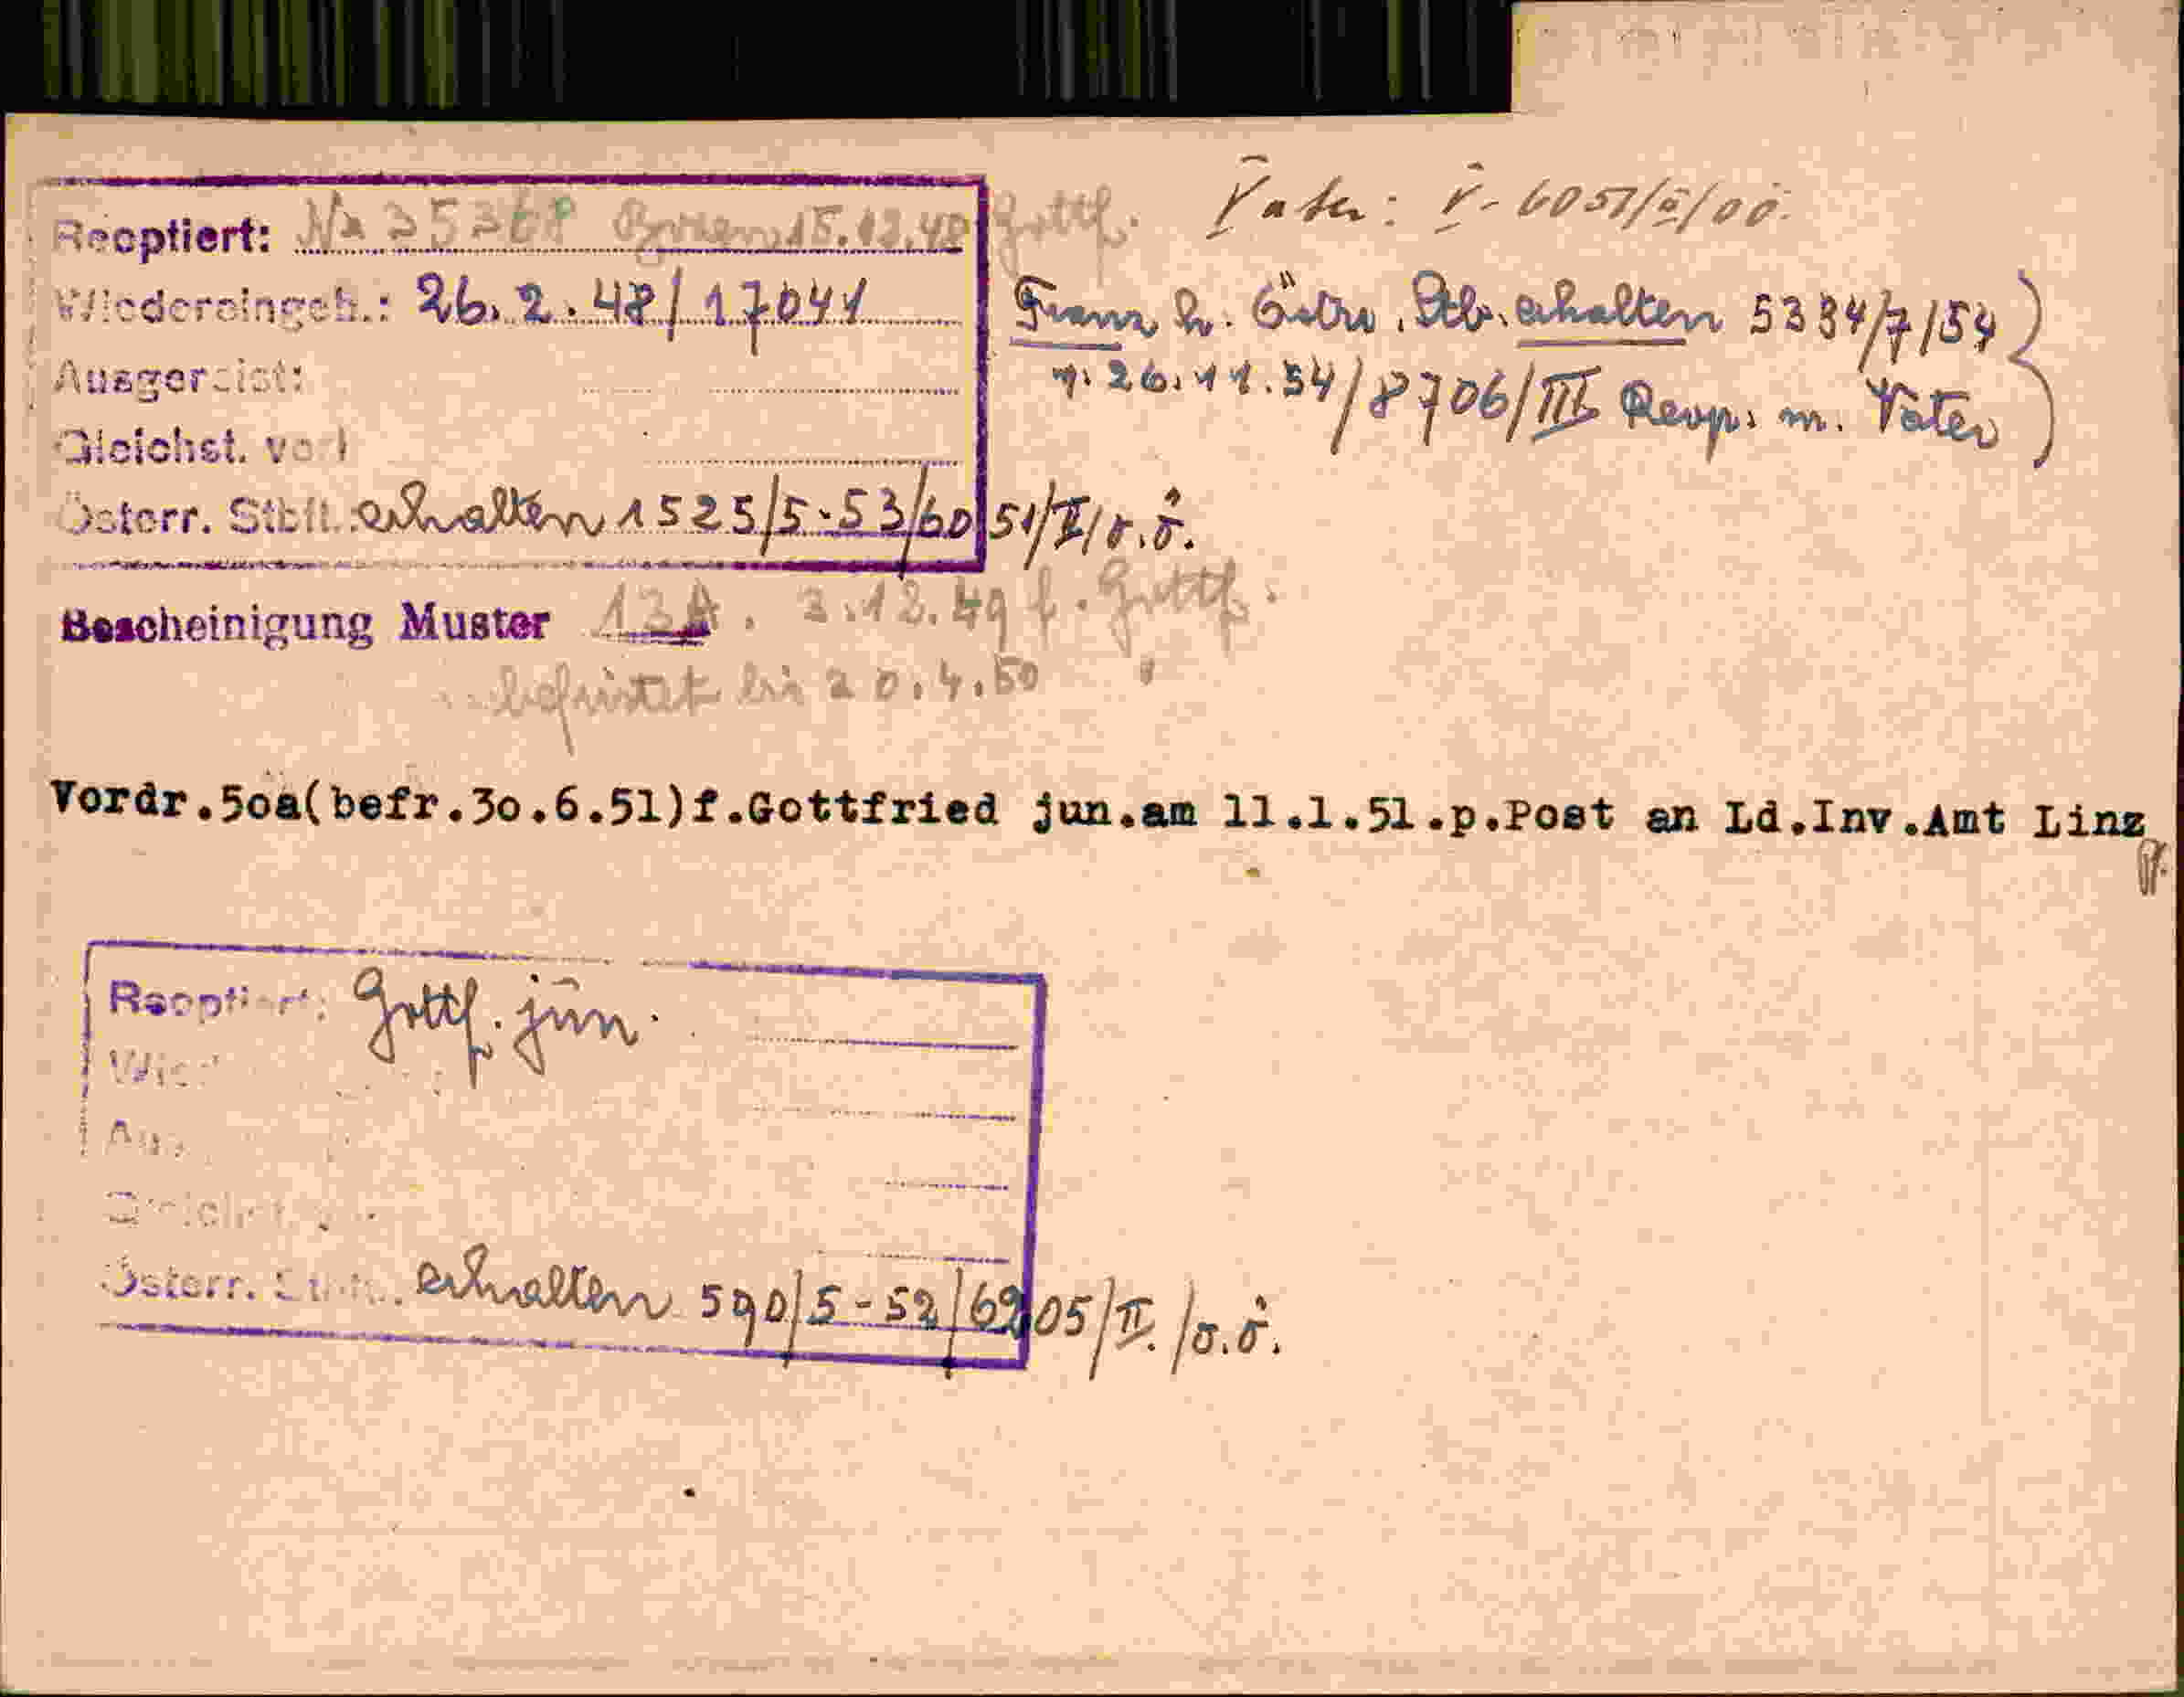 Reoptiert: No 35368 Bozen 15.12.48 Gottf.
Vater: V- 6051/II/OÖ.
Wiedereingeb.: 26.2.48/17041
Franz h. Östr. Stb. erhalten 5334/7/54
v. 26.11.54/8706/III Reop. m. Vater
Ausgereist:
Gleichst. vor
Österr. Stbft. erhalten 1525/5-53/6051/II/o.ö.
Bescheinigung Muster 13A. 2.12.49 f. Gottf.
befristet bis 20.4.50 "
Vordr.5oa(befr.3o.6.51)f.Gottfried jun.am 11.1.51.p.Post an Ld.Inv.Amt Linz
Reoptiert: Gottf. jun.
Wied
Aus
Gleichst.
Österr. erhalten 590/5-52/6205/II./o.ö.